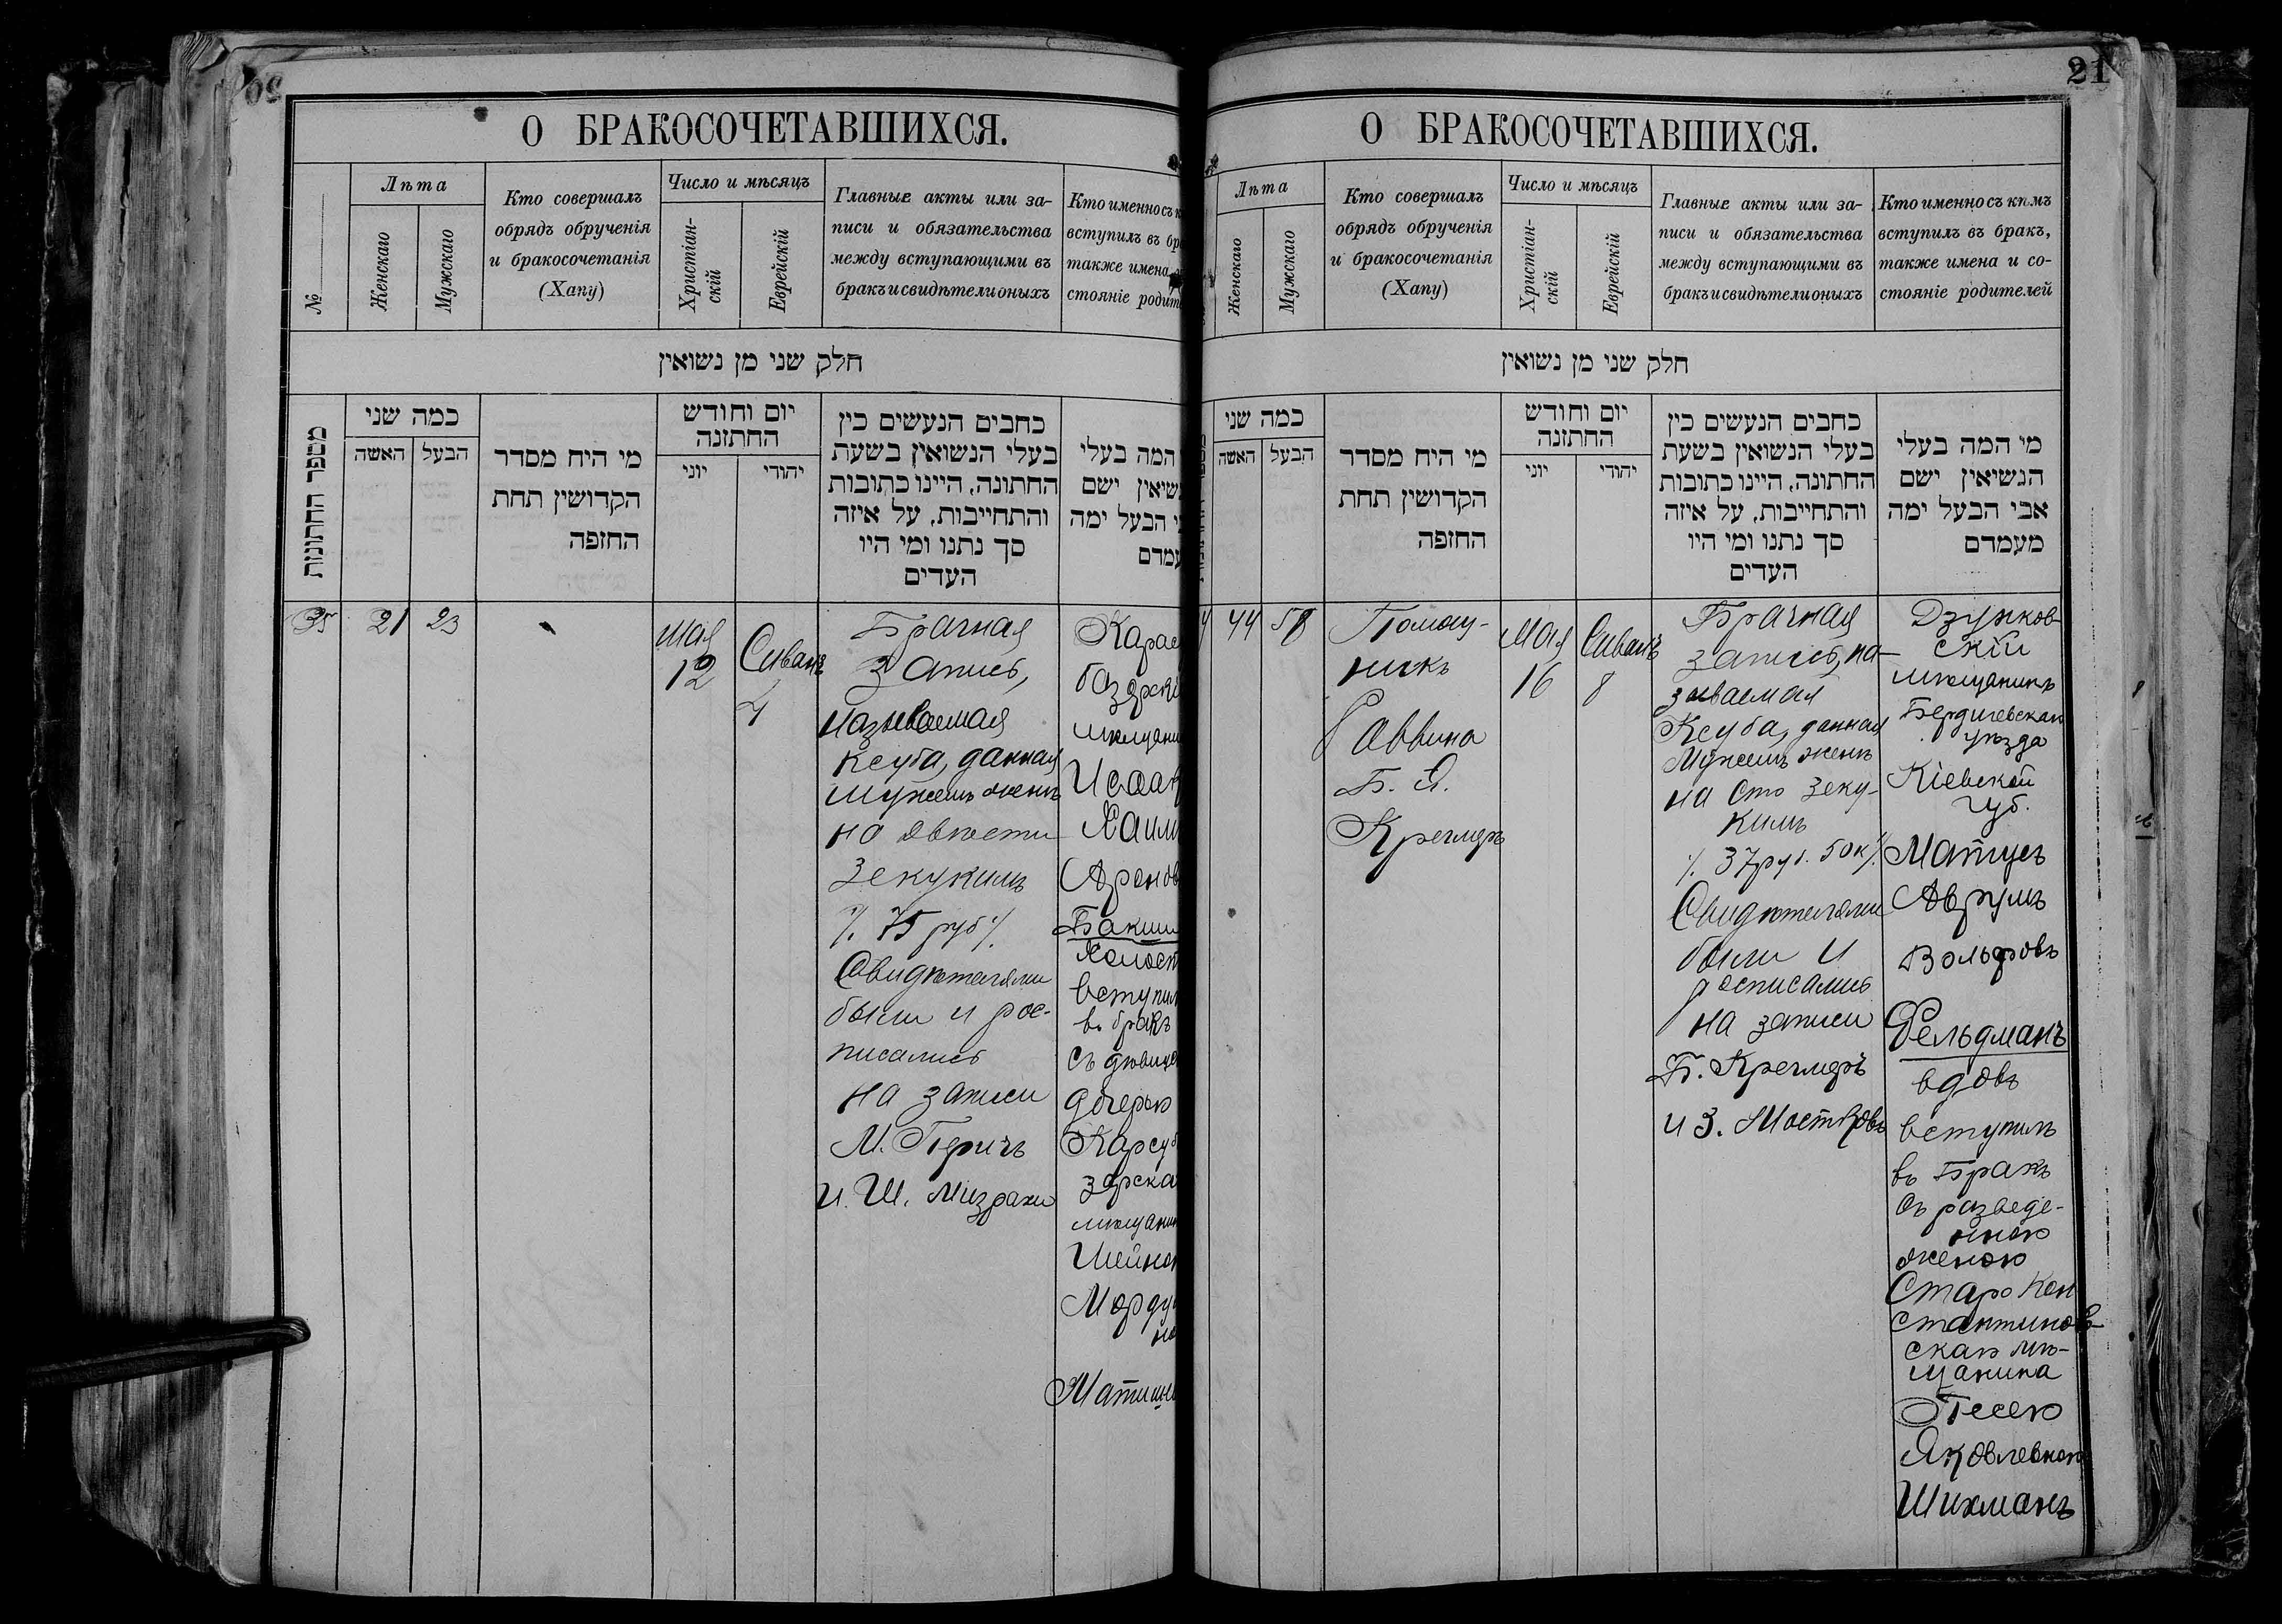 О БРАКОСОЧЕТАВШИХСЯ.
№
Лѣта
Женскаго
Мужскаго
Кто совершалъ
обрядъ обрученія
и бракосочетанія
(Хапу)
Число и мѣсяцъ
Христіан-
скій
Еврейскій
Главные акты или за-
писи и обязательства
между вступающими въ
бракъ и свидѣтели оныхъ
Кто именно съ к
вступилъ въ бр
также имена
стояніе родит
חלק שני מן נשואין
מספר החתונות
כמה שני
האשה
הבעל
מי היח מסדר
הקדושין תחת
החופה
יום וחודש
החתזנה
יוני
יהודי
כחבים הנעשים כין
בעלי הנשואין בשעת
החתונה, היינו כתובות
והתחייבות, על איזה
סך נתנו ומי היו
העדים
המה בעלי
שיאין ישם
י הבעל ימה
עמדם
35
21
23
Мая
12
Сиванъ
4
Брачная
Запись,
называемая
Ксуба, данная
Мужемъ женѣ
на двѣсти
Зекукимъ
/. 75 руб /.
Свидѣтелями
были и рос-
писались
на записи
М. Перичъ
и Ш. Мизрахи
Карас
базарскі
мѣщани
Исаак
Хаим
Аронов
Бакши
Холост
вступил
въ бракъ
съ дѣвице
дочерью
Карсуб
зарска
мѣщанин
Шейно
Морду
но
21
О БРАКОСОЧЕТАВШИХСЯ.
Лѣта
Женскаго
Мужскаго
Кто совершалъ
обрядъ обрученія
и бракосочетанія
(Хапу)
Число и мѣсяцъ
Христіан-
скій
Еврейскій
Главные акты или за-
писи и обязательства
между вступающими въ
бракъ и свидѣтели оныхъ
Кто именно съ кѣмъ
вступилъ въ бракъ,
также имена и со-
стояніе родителей
חלק שני מן נשואין
כמה שני
האשה
הבעל
מי היח מסדר
הקדושין תחת
החופה
יום וחודש
החתזנה
יוני
יהודי
כחבים הנעשים כין
בעלי הנשואין בשעת
החתונה, היינו כתובות
והתחייבות, על איזה
סך נתנו ומי היו
העדים
מי המה בעלי
הנשיאין ישם
אבי הבעל ימה
מעמדם
44
58
Помощ-
никъ
Раввина
Б. Я.
Кречмеръ
Мая
16
Сиванъ
8
Брачная
запись, на-
зываемая
Ксуба, данная
Мужемъ женѣ
на Сто Зеку-
кимъ
/. 37 руб. 50 к /.
Свидѣтелями
были и
росписались
на записи
Б. Кречмеръ
и З. Мостковъ
Дзунков-
скій
мѣщанинъ
Бердичевскаго
уѣзда
Кіевской
губ.
Матусъ
Аврумъ
Вольфовъ
Фельдманъ
вдовъ
вступилъ
въ Бракъ
съ разведе-
нною
женою
Старо Кон
стантинов-
скаго мѣ-
щанина
Песею
Яковлевною
Шихманъ